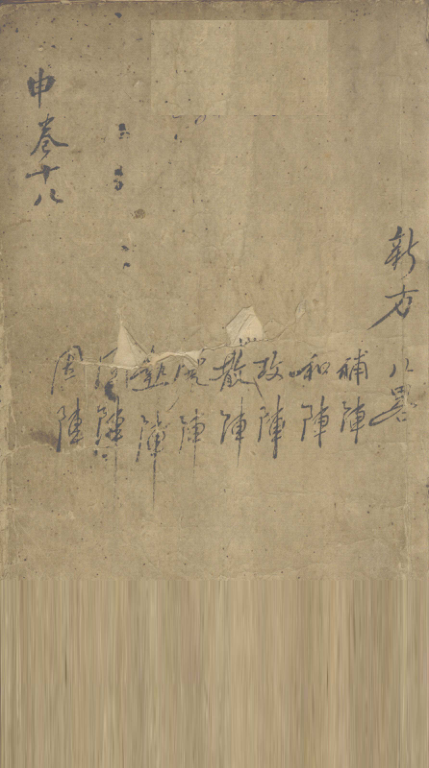 新方八畧
補陣
和陣
攻陣
散陣
陣
熱陣
陣
因陣
申卷十八